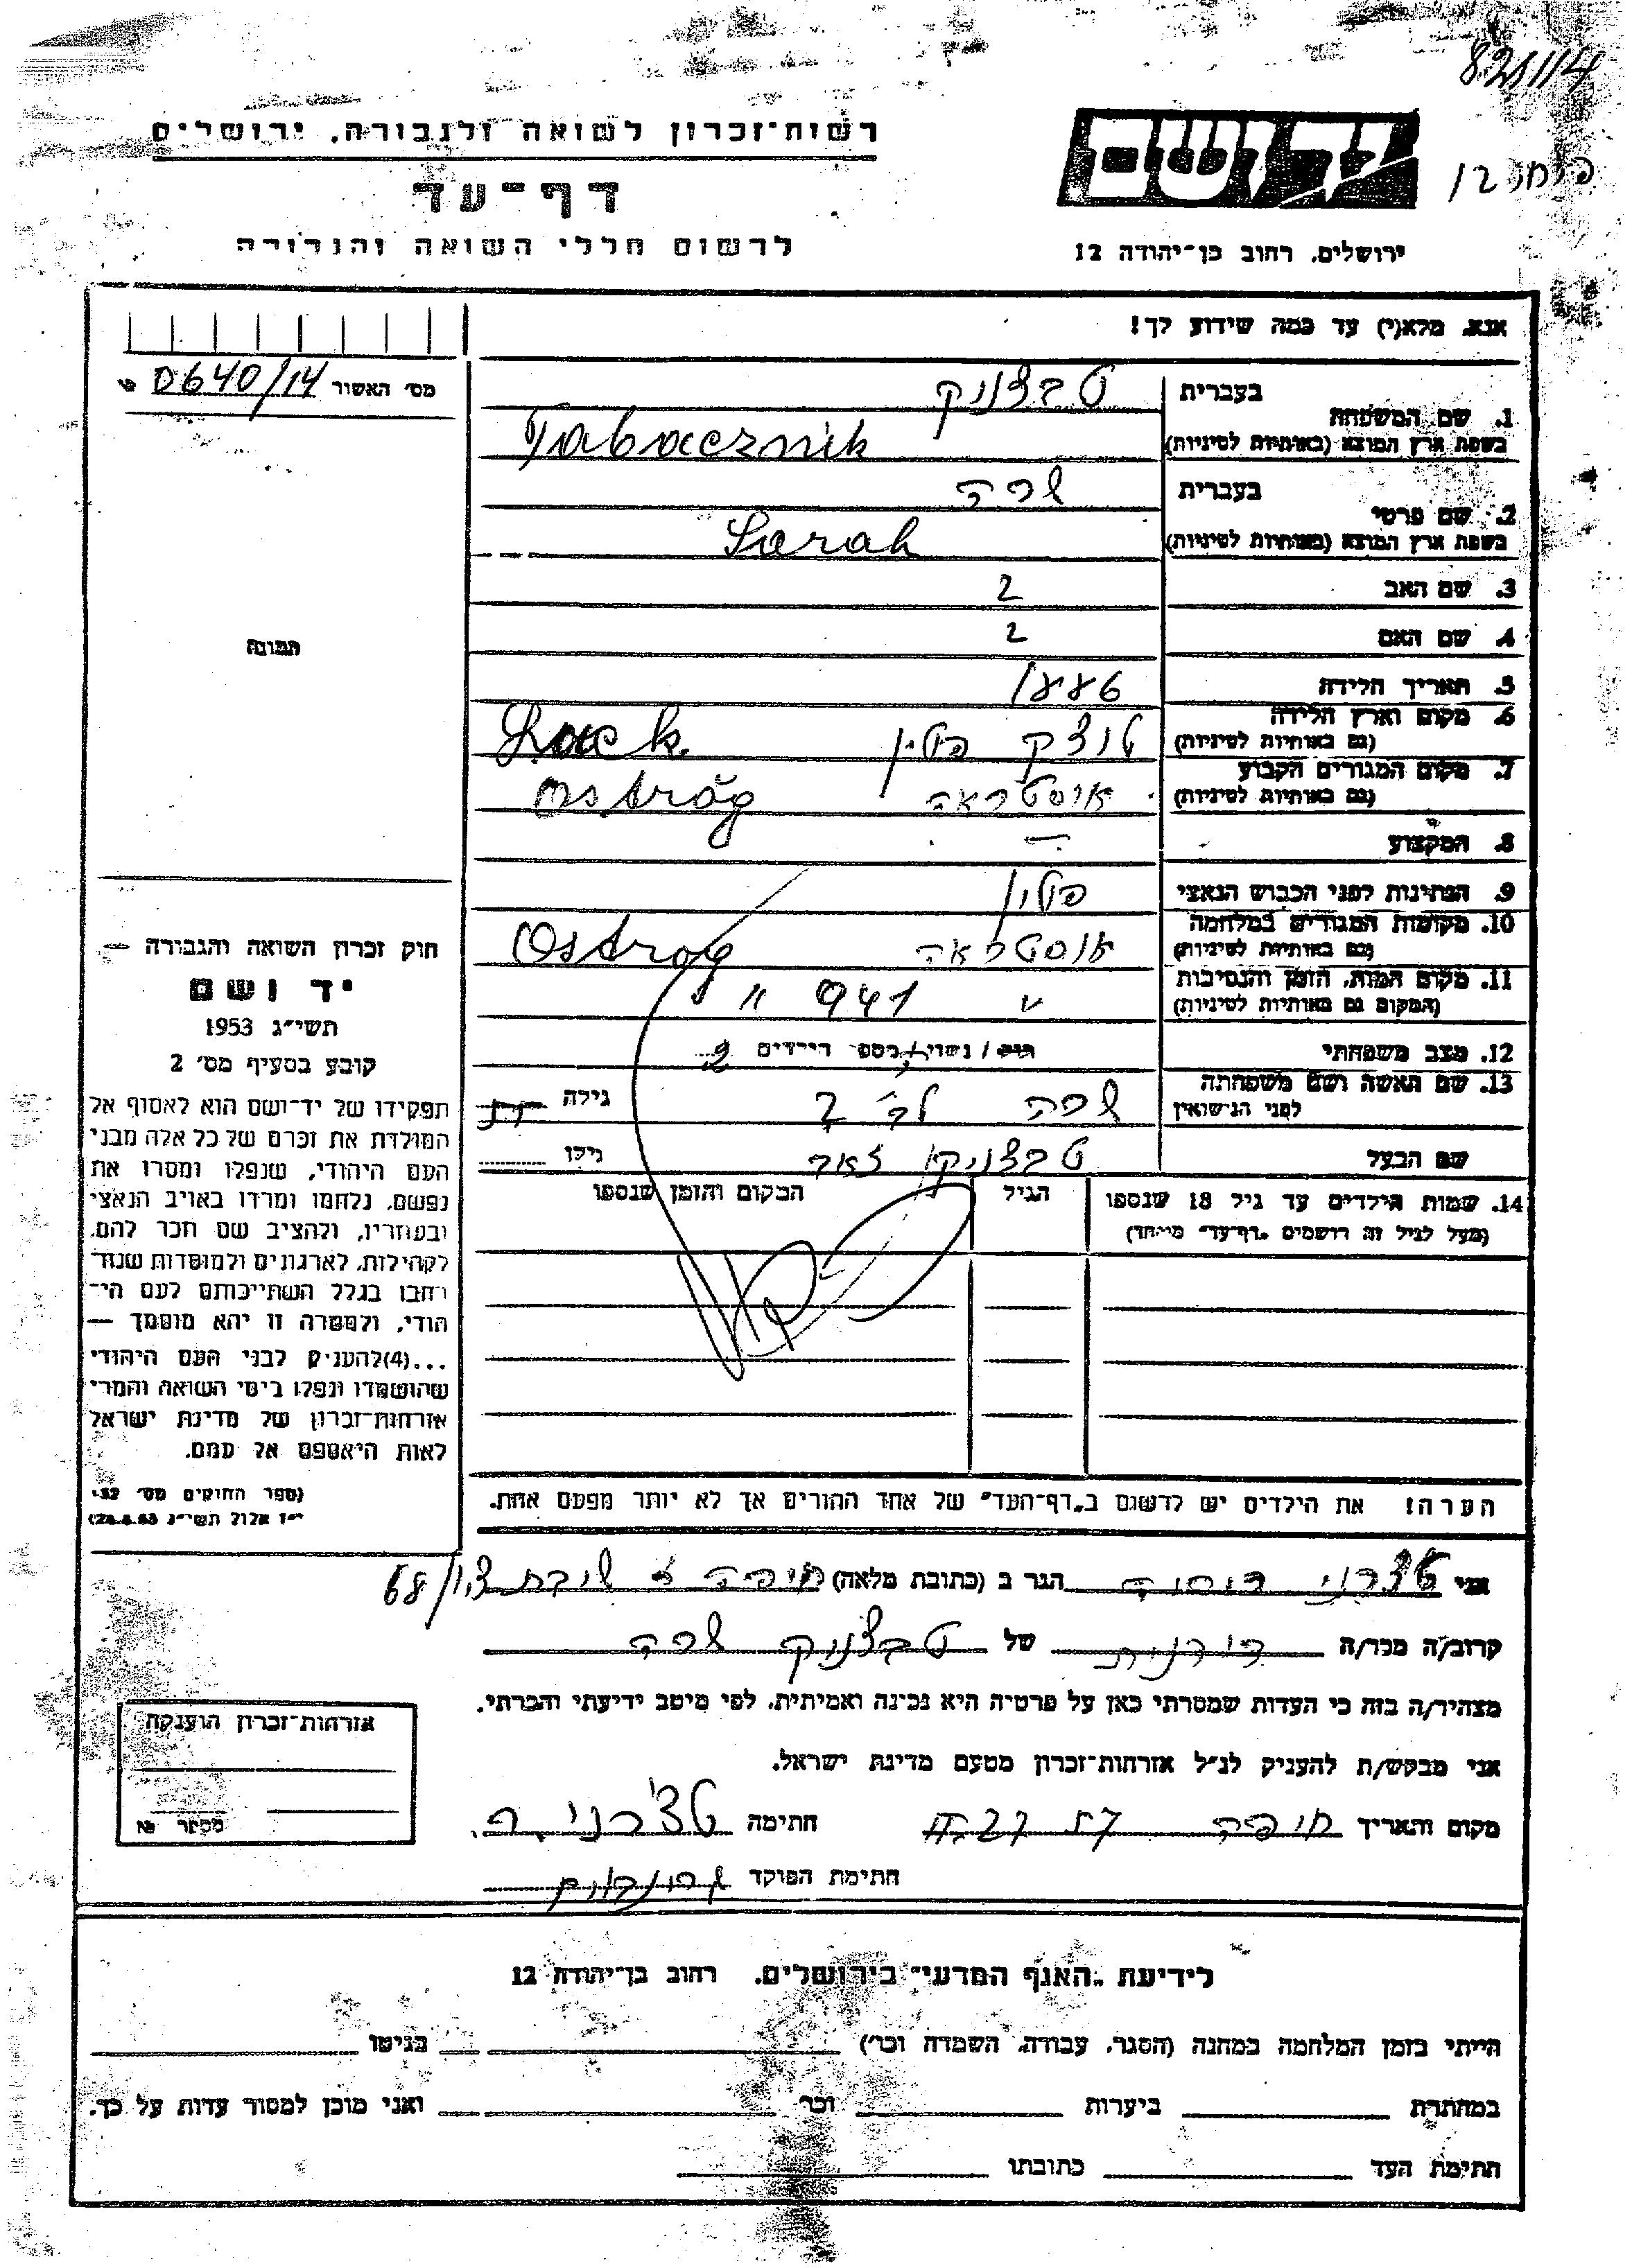 821/14
רשות־זכרון לשואה ולגבורה, ירושלים
דף־עד
לרשום חללי השואה והגבורה
יד ושם
ירושלים, רחוב בן־יהודה 12
אנא, מלא(י) עד כמה שידוע לך!
מס׳ האשור 0640/14
תמונה
1. שם המשפחה
בעברית טבצניק
בשפת ארץ המוצא (באותיות לטיניות) Tabacznik
2. שם פרטי
בעברית שרה
בשפת ארץ המוצא (באותיות לטיניות) Sarah
3. שם האב ?
4. שם האם ?
5. תאריך הלידה
6. מקום וארץ הלידה
(גם באותיות לטיניות) לוצק פולין Luck
7. מקום המגורים הקבוע
(גם באותיות לטיניות) אוסטראה Ostróg
8. המקצוע —
9. הנתינות לפני הכבוש הנאצי פולין
10. מקומות המגורים במלחמה
(גם באותיות לטיניות) אוסטראה Ostrog
11. מקום המות, הזמן והנסיבות
(המקום גם באותיות לטיניות) " 941 "
12. מצב משפחתי רוק / נשוי / מספר הילדים 2
13. שם האשה ושם משפחתה
לפני הנישואין שרה לב׳ ? גילה
שם הבעל טבצניק זאב גילו
14. שמות הילדים עד גיל 18 שנספו
(מעל לגיל זה רושמים „דף־עד״ מיוחד)
הגיל
המקום והזמן שנספו
חוק זכרון השואה והגבורה —
יד ושם
תשי״ג 1953
קובע בסעיף מס׳ 2
תפקידו של יד־ושם הוא לאסוף אל
המולדת את זכרם של כל אלה מבני
העם היהודי, שנפלו ומסרו את
נפשם, נלחמו ומרדו באויב הנאצי
ובעוזריו, ולהציב שם וזכר להם,
לקהילות, לארגונים ולמוסדות שנח־
רבו בגלל השתייכותם לעם הי־
הודי, ולמטרה זו יהא מוסמך —
...(4) להעניק לבני העם היהודי
שהושמדו ונפלו בימי השואה והמרי
אזרחות־זכרון של מדינת ישראל
לאות היאספם אל עמם.
(ספר החוקים מס׳ 132,
י״ז אלול תשי״ג 28.8.53)
הערה! את הילדים יש לרשום ב„דף־העד״ של אחד ההורים אך לא יותר מפעם אחת.
אני הגר ב (כתובת מלאה) חיפה שיבת ציון 68/
קרוב/ה מכר/ה של טבצניק שרה
מצהיר/ה בזה כי העדות שמסרתי כאן על פרטיה היא נכונה ואמיתית, לפי מיטב ידיעתי והכרתי.
אני מבקש/ת להעניק לנ״ל אזרחות־זכרון מטעם מדינת ישראל.
מקום ותאריך חיפה חתימה
חתימת הפוקד
אזרחות־זכרון הוענקה
מספר
לידיעת „האגף המדעי״ בירושלים, רחוב בן־יהודה 12
הייתי בזמן המלחמה במחנה (הסגר, עבודה, השמדה וכו׳) בגיטו
במחתרת ביערות וכו׳ ואני מוכן למסור עדות על כך.
חתימת העד כתובתו